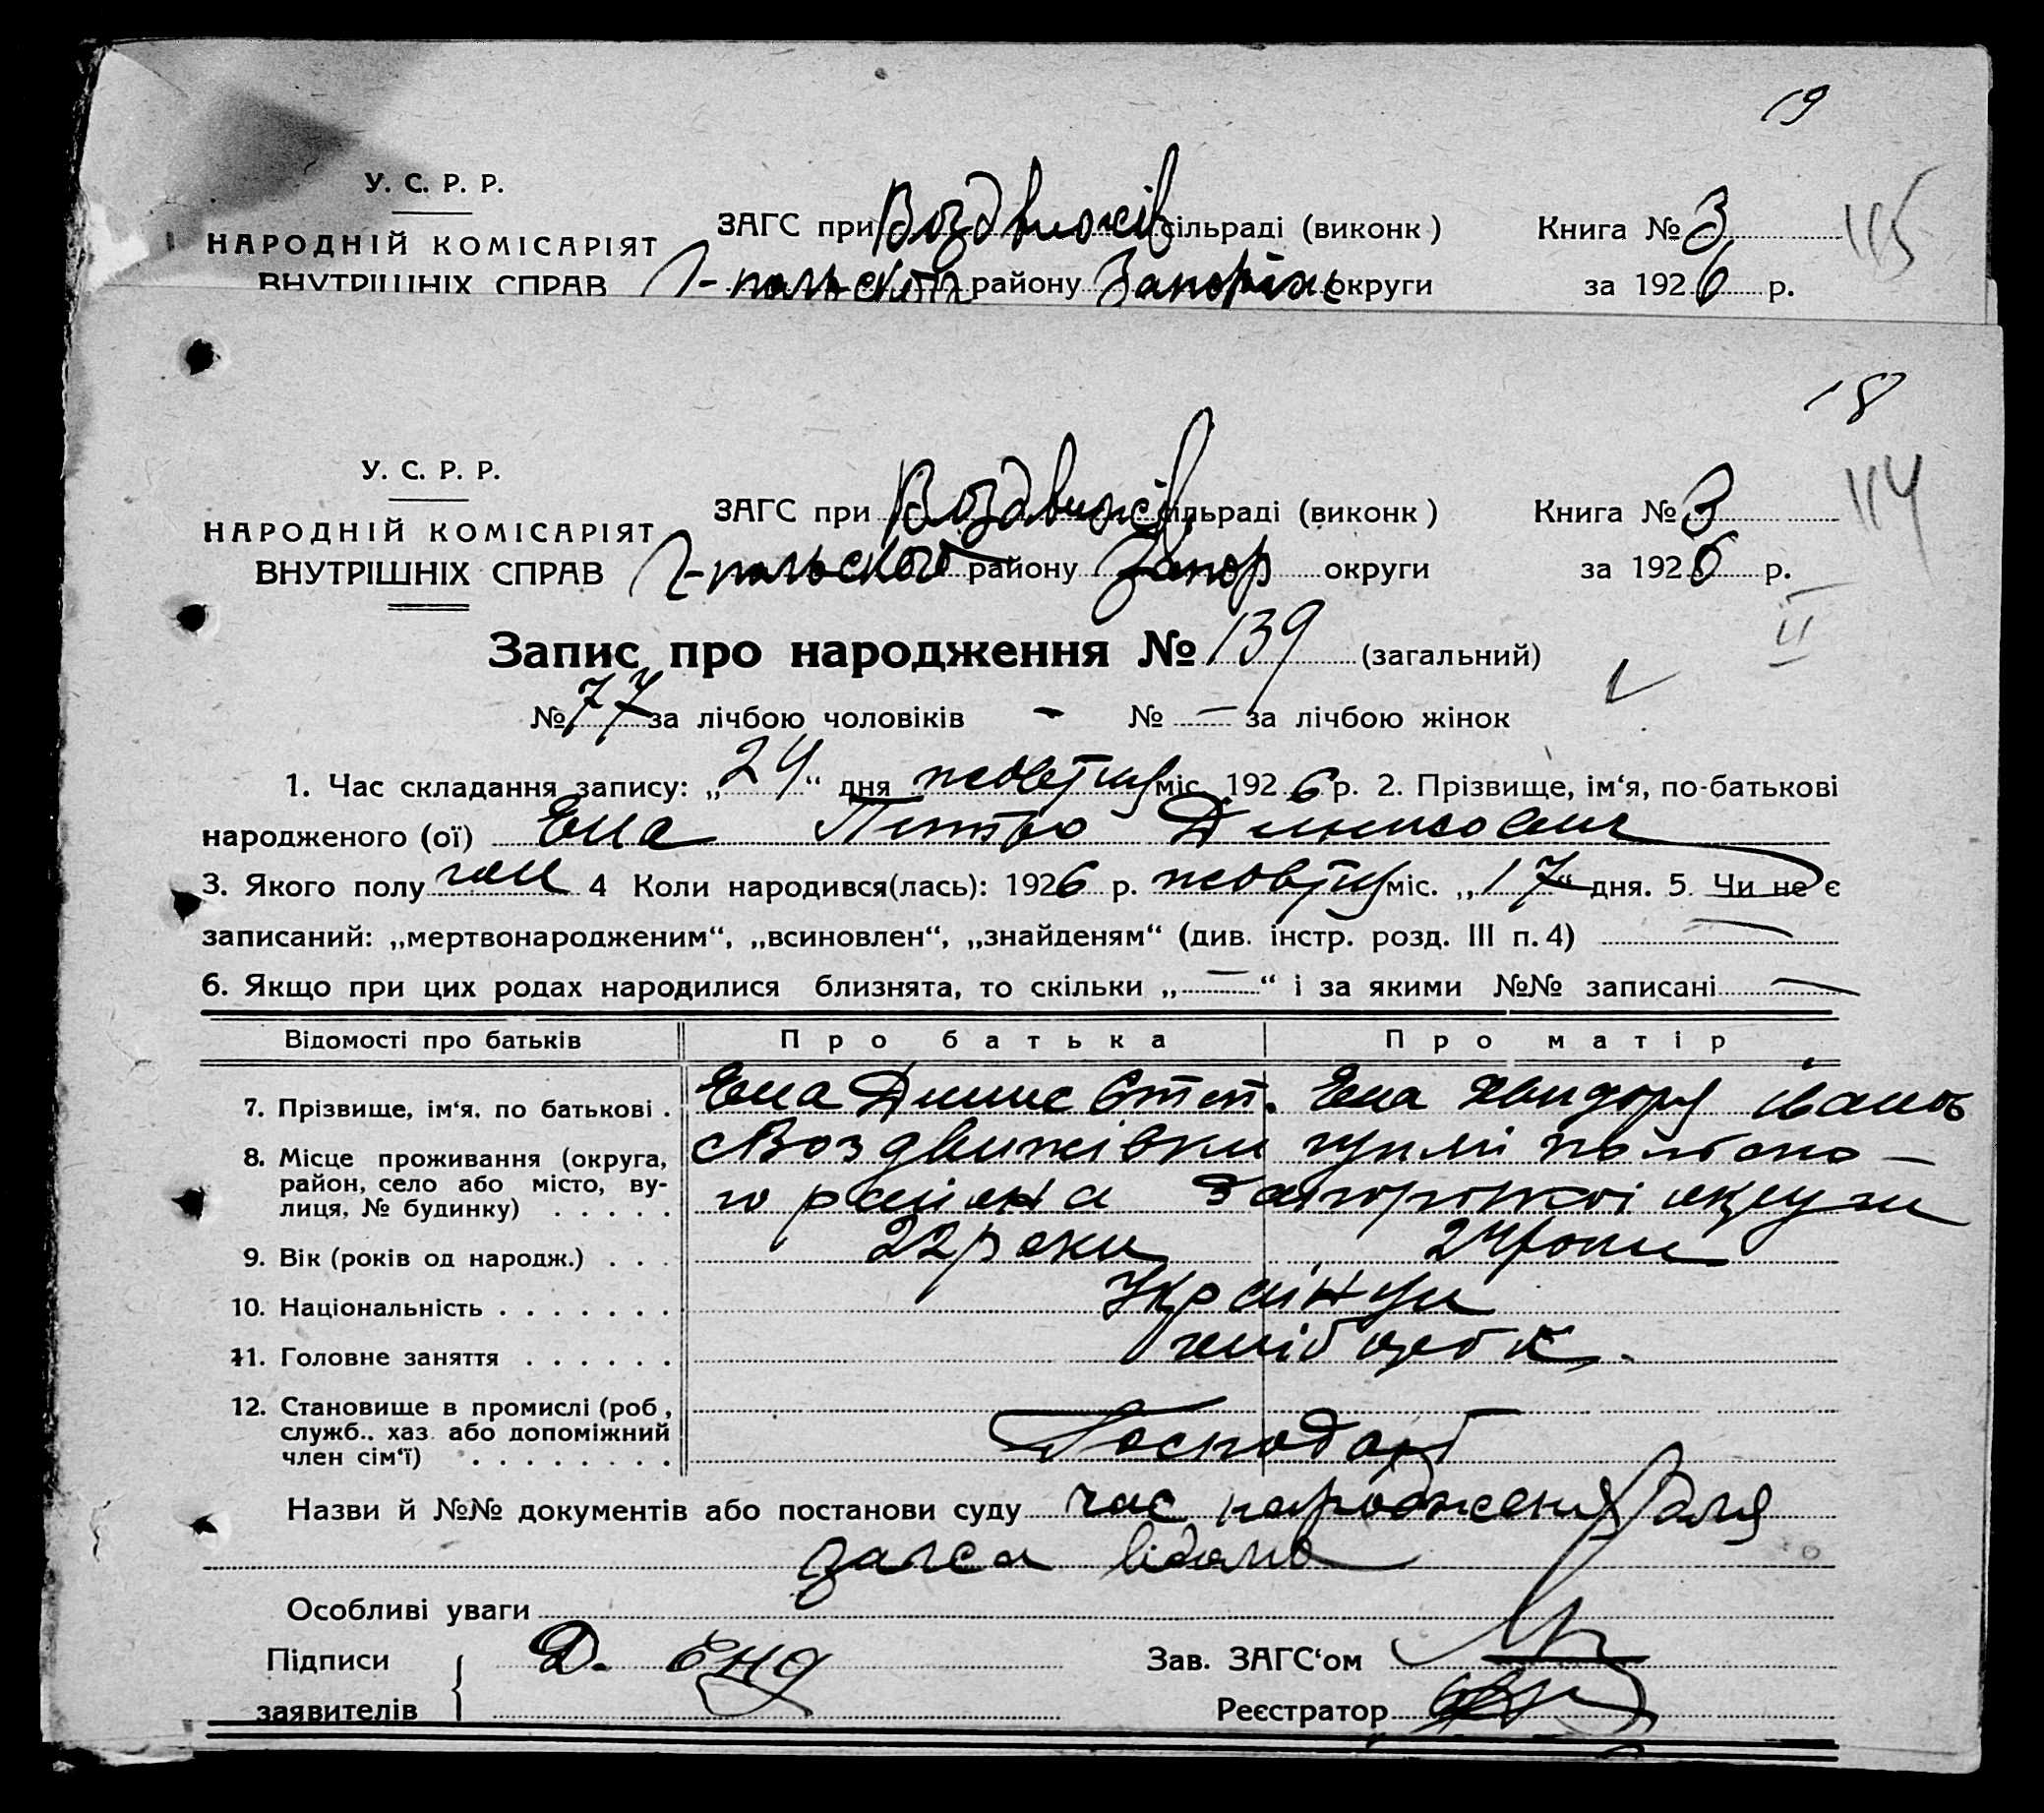 19
У. С. Р. Р.
НАРОДНІЙ КОМІСАРІЯТ
ВНУТРІШНІХ СПРАВ
ЗАГС при Воздвижів сільраді (виконк)
Г-польского району Запоріж округи
Книга № 3
за 1926 р.
115
18
У. С. Р. Р.
НАРОДНІЙ КОМІСАРІЯТ
ВНУТРІШНІХ СПРАВ
ЗАГС при Воздвижів сільраді (виконк)
Г-польского району Запор округи
Книга № 3
за 1926 р.
114
II
Запис про народження № 139 (загальний)
№ 77 за лічбою чоловіків - № - за лічбою жінок
1. Час складання запису: „24“ дня жовтня міс. 1926 р. 2. Прізвище, ім‘я, по-батькові
народженого (ої) Ена Петро Денисович
3. Якого полу чол 4 Коли народився(лась): 1926 р. жовтня міс. „17“ дня. 5. Чи не є
записаний: „мертвонародженим“, „всиновлен“, „знайденям“ (див. інстр. розд. III п. 4) —
6. Якщо при цих родах народилися близнята, то скільки „—“ і за якими №№ записані —
Відомості про батьків Про батька Про матір
7. Прізвище, ім‘я, по батькові . Ена Денис Степ. Ена Івановн
8. Місце проживання (округа, район, село або місто, вулиця, № будинку) . . . . . с Воздвижівки гуляй польско-
го района Запорожої округи
9. Вік (років од народж.) . . . 22 роки 24 роки
10. Національність . . . . . . . Українци
11. Головне заняття . . . . . . хлібороб
12. Становище в промислі (роб, служб.. хаз. або допоміжний член сім‘ї) . . . . . . . . Господарі
Назви й №№ документів або постанови суду час народження для
загса видано
Особливі уваги
Підписи заявителів Д. Ена
Зав. ЗАГС‘ом
Реєстратор